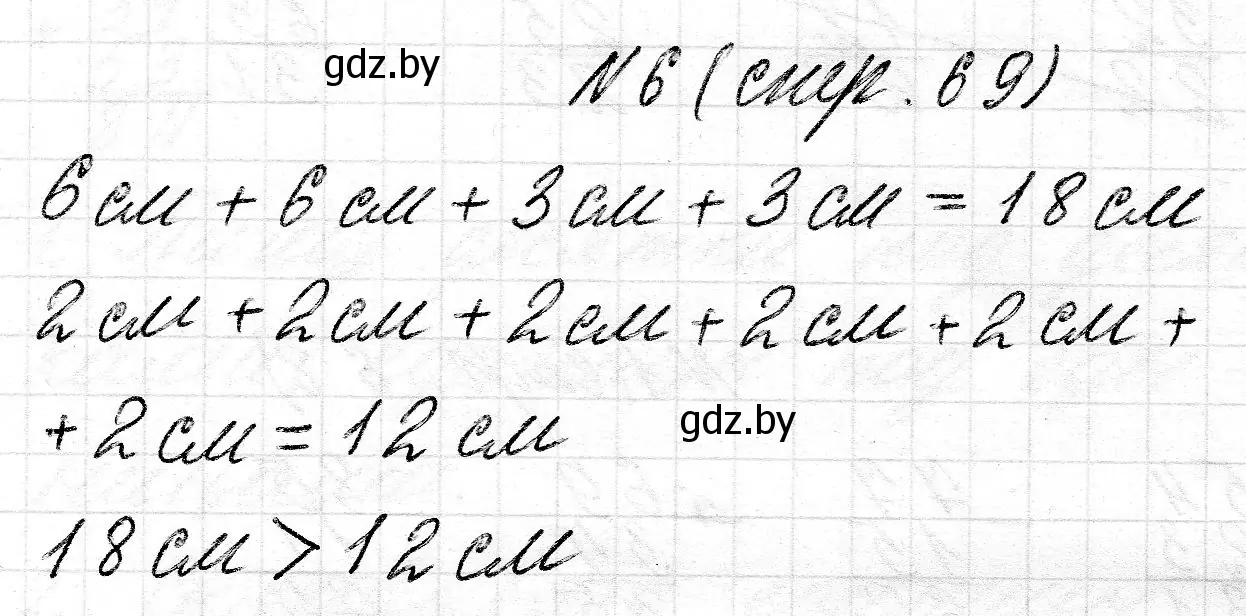 gdz.by
N 6 (стр. 69)
6 см + 6 см + 3 см + 3 см = 18 см
2 см + 2 см + 2 см + 2 см + 2 см +
+ 2 см = 12 см
gdz.by
18 см > 12 см